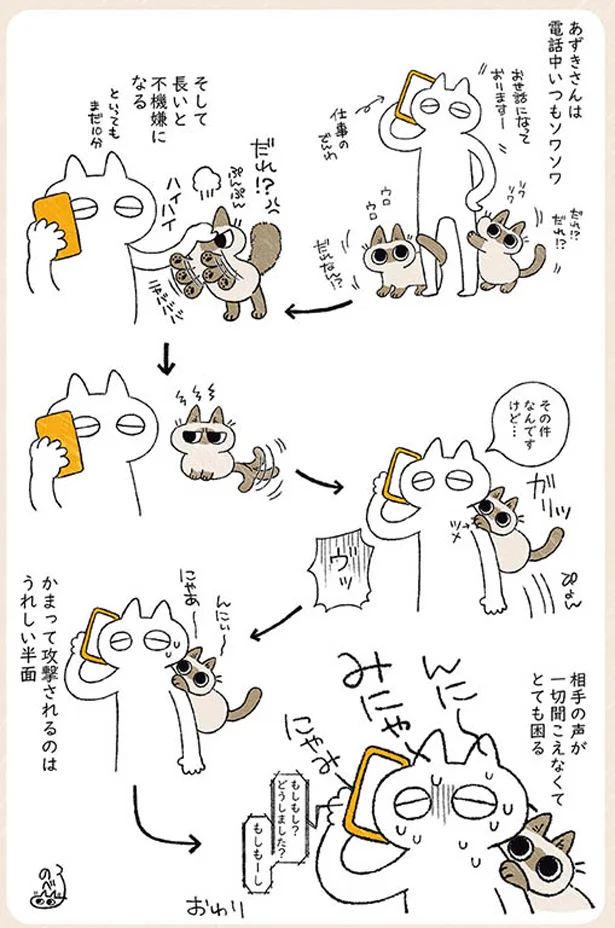 あずきさんは
電話中いつもソワソワ
お世話になって
おりますー
仕事の
でんわ
ソワ
ソワ
だれ!?
だれ!?
ウロ
ウロ
だれなん!?
そして
長いと
不機嫌に
なる
といっても
まだ10分
だれ!?
ぷんぷん
ハイ
ハイ
ニャバババ
その件
なんです
けど…
ガリッ
ツメ
ぴょん
ウッ
んにぃー
にゃあー
かまって攻撃されるのは
うれしい半面
相手の声が
一切聞こえなくて
とても困る
んにー
みにゃー
にゃみ
もしもし?
どうしました?
もしもーし
おわり
のべ